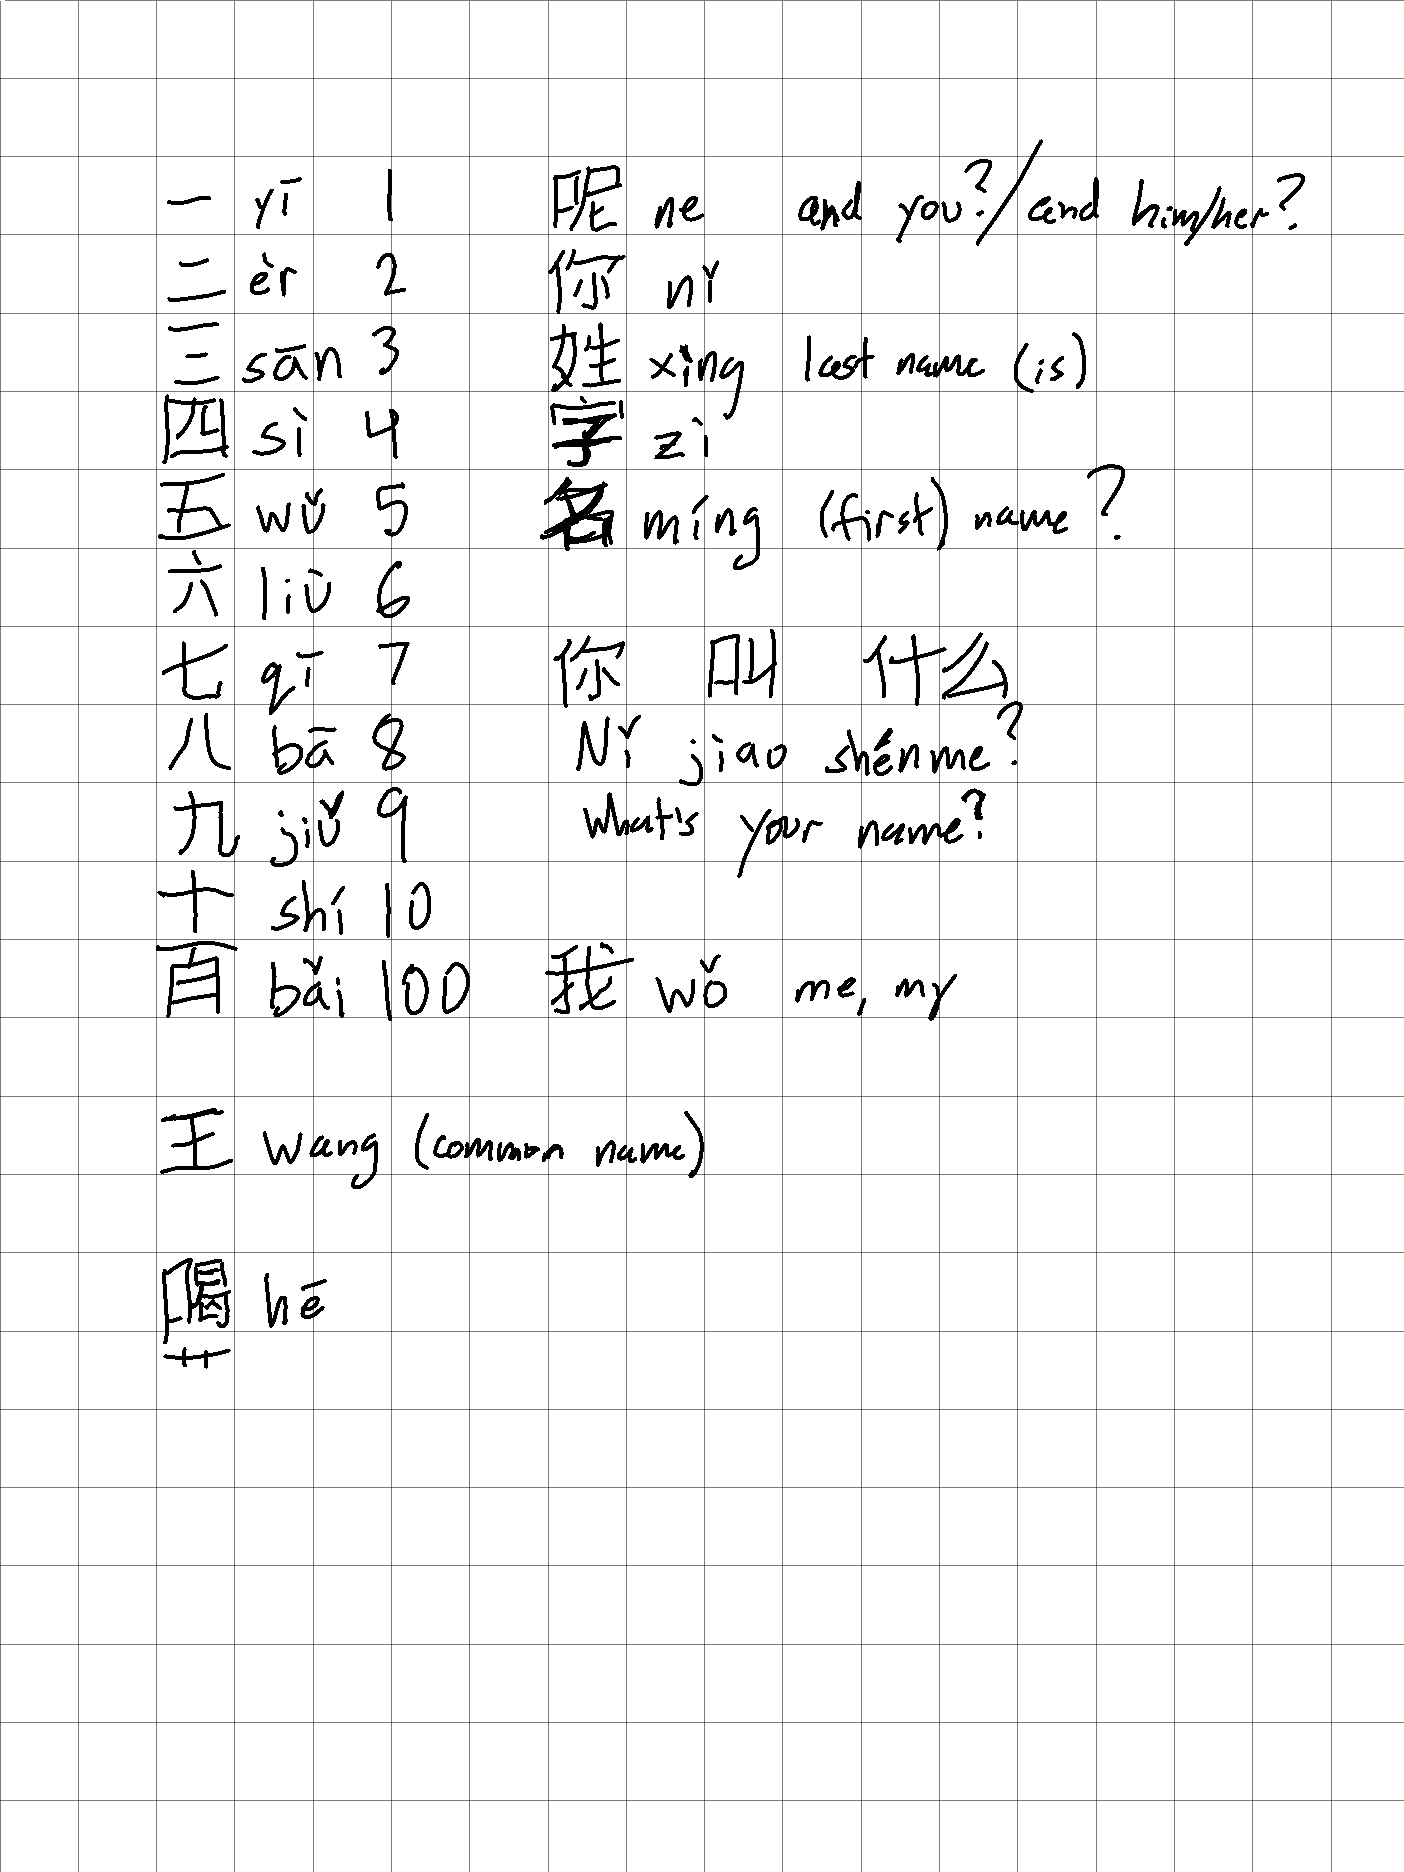 一 yī 1 呢 ne and you?/and him/her?
二 èr 2 你 nǐ
三 sān 3 姓 xìng last name (is)
四 sì 4 字 zì
五 wǔ 5 名 míng (first) name?
六 liù 6
七 qī 7 你 叫 什么
八 bā 8 Nǐ jiao shénme?
九 jiǔ 9 What's your name?
十 shí 10
百 bǎi 100 我 wǒ me, my
王 wang (common name)
喝 hē
艹